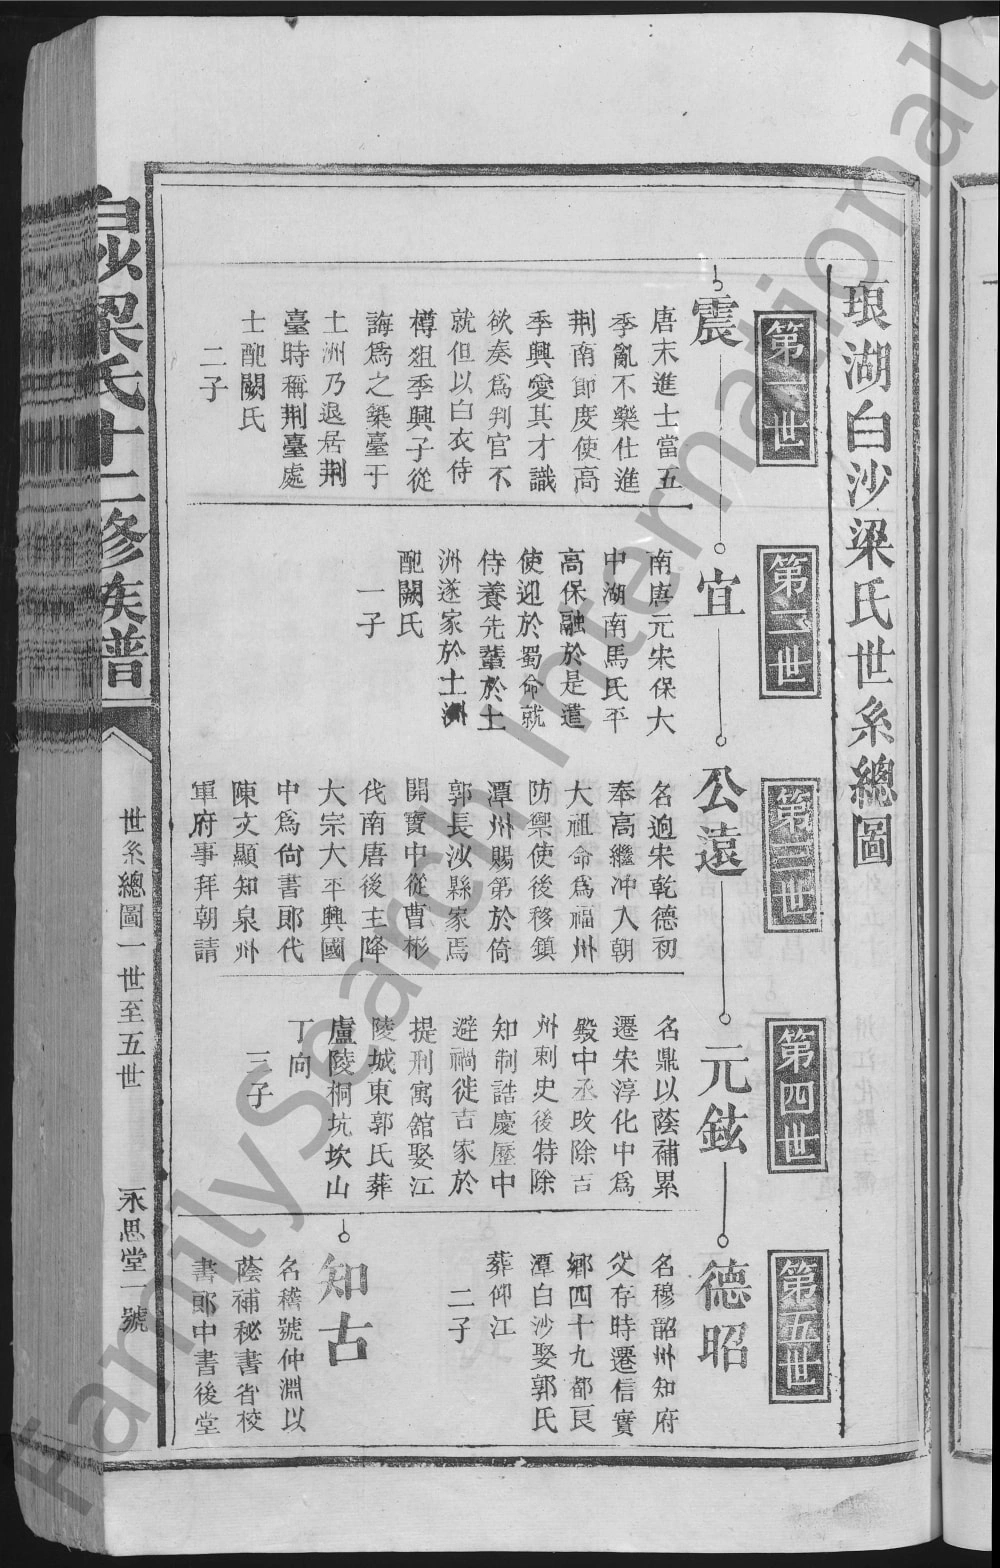 琅湖白沙梁氏世系總圖
第一世
震
唐末進士當五
季亂不樂仕進
荆南節度使高
季興愛其才識
欲奏爲判官不
就但以白衣侍
樽俎季興子從
誨爲之築臺于
土洲乃退居荆
臺時稱荆臺處
士配關氏
二子
第二世
宜
南唐元宋保大
中湖南馬氏平
高保融於是遣
使迎於蜀命就
侍養先輩於土
洲遂家於土洲
配關氏
一子
第三世
公遠
名逈宋乾德初
奉高繼冲入朝
大祖命爲福州
防禦使後移鎮
潭州賜第於倚
郭長汝縣家焉
開寶中從曹彬
伐南唐後主降
大宗大平興國
中爲尙書郎代
陳文顯知泉州
軍府事拜朝請
第四世
元鉉
名鼎以蔭補累
遷宋淳化中爲
殿中丞改除吉
州刺史後特除
知制誥慶歷中
避禍徙吉家於
提刑寓舘娶江
陵城東郭氏葬
廬陵桐坑坎山
丁向
三子
第五世
德昭
名穆韶州知府
父存時遷信實
鄉四十九都艮
潭白沙娶郭氏
葬仰江
二子
知古
名䅲號仲淵以
蔭補秘書省校
書郎中書後堂
白沙梁氏十二修族譜
世系總圖一世至五世
永思堂一號
FamilySearch International